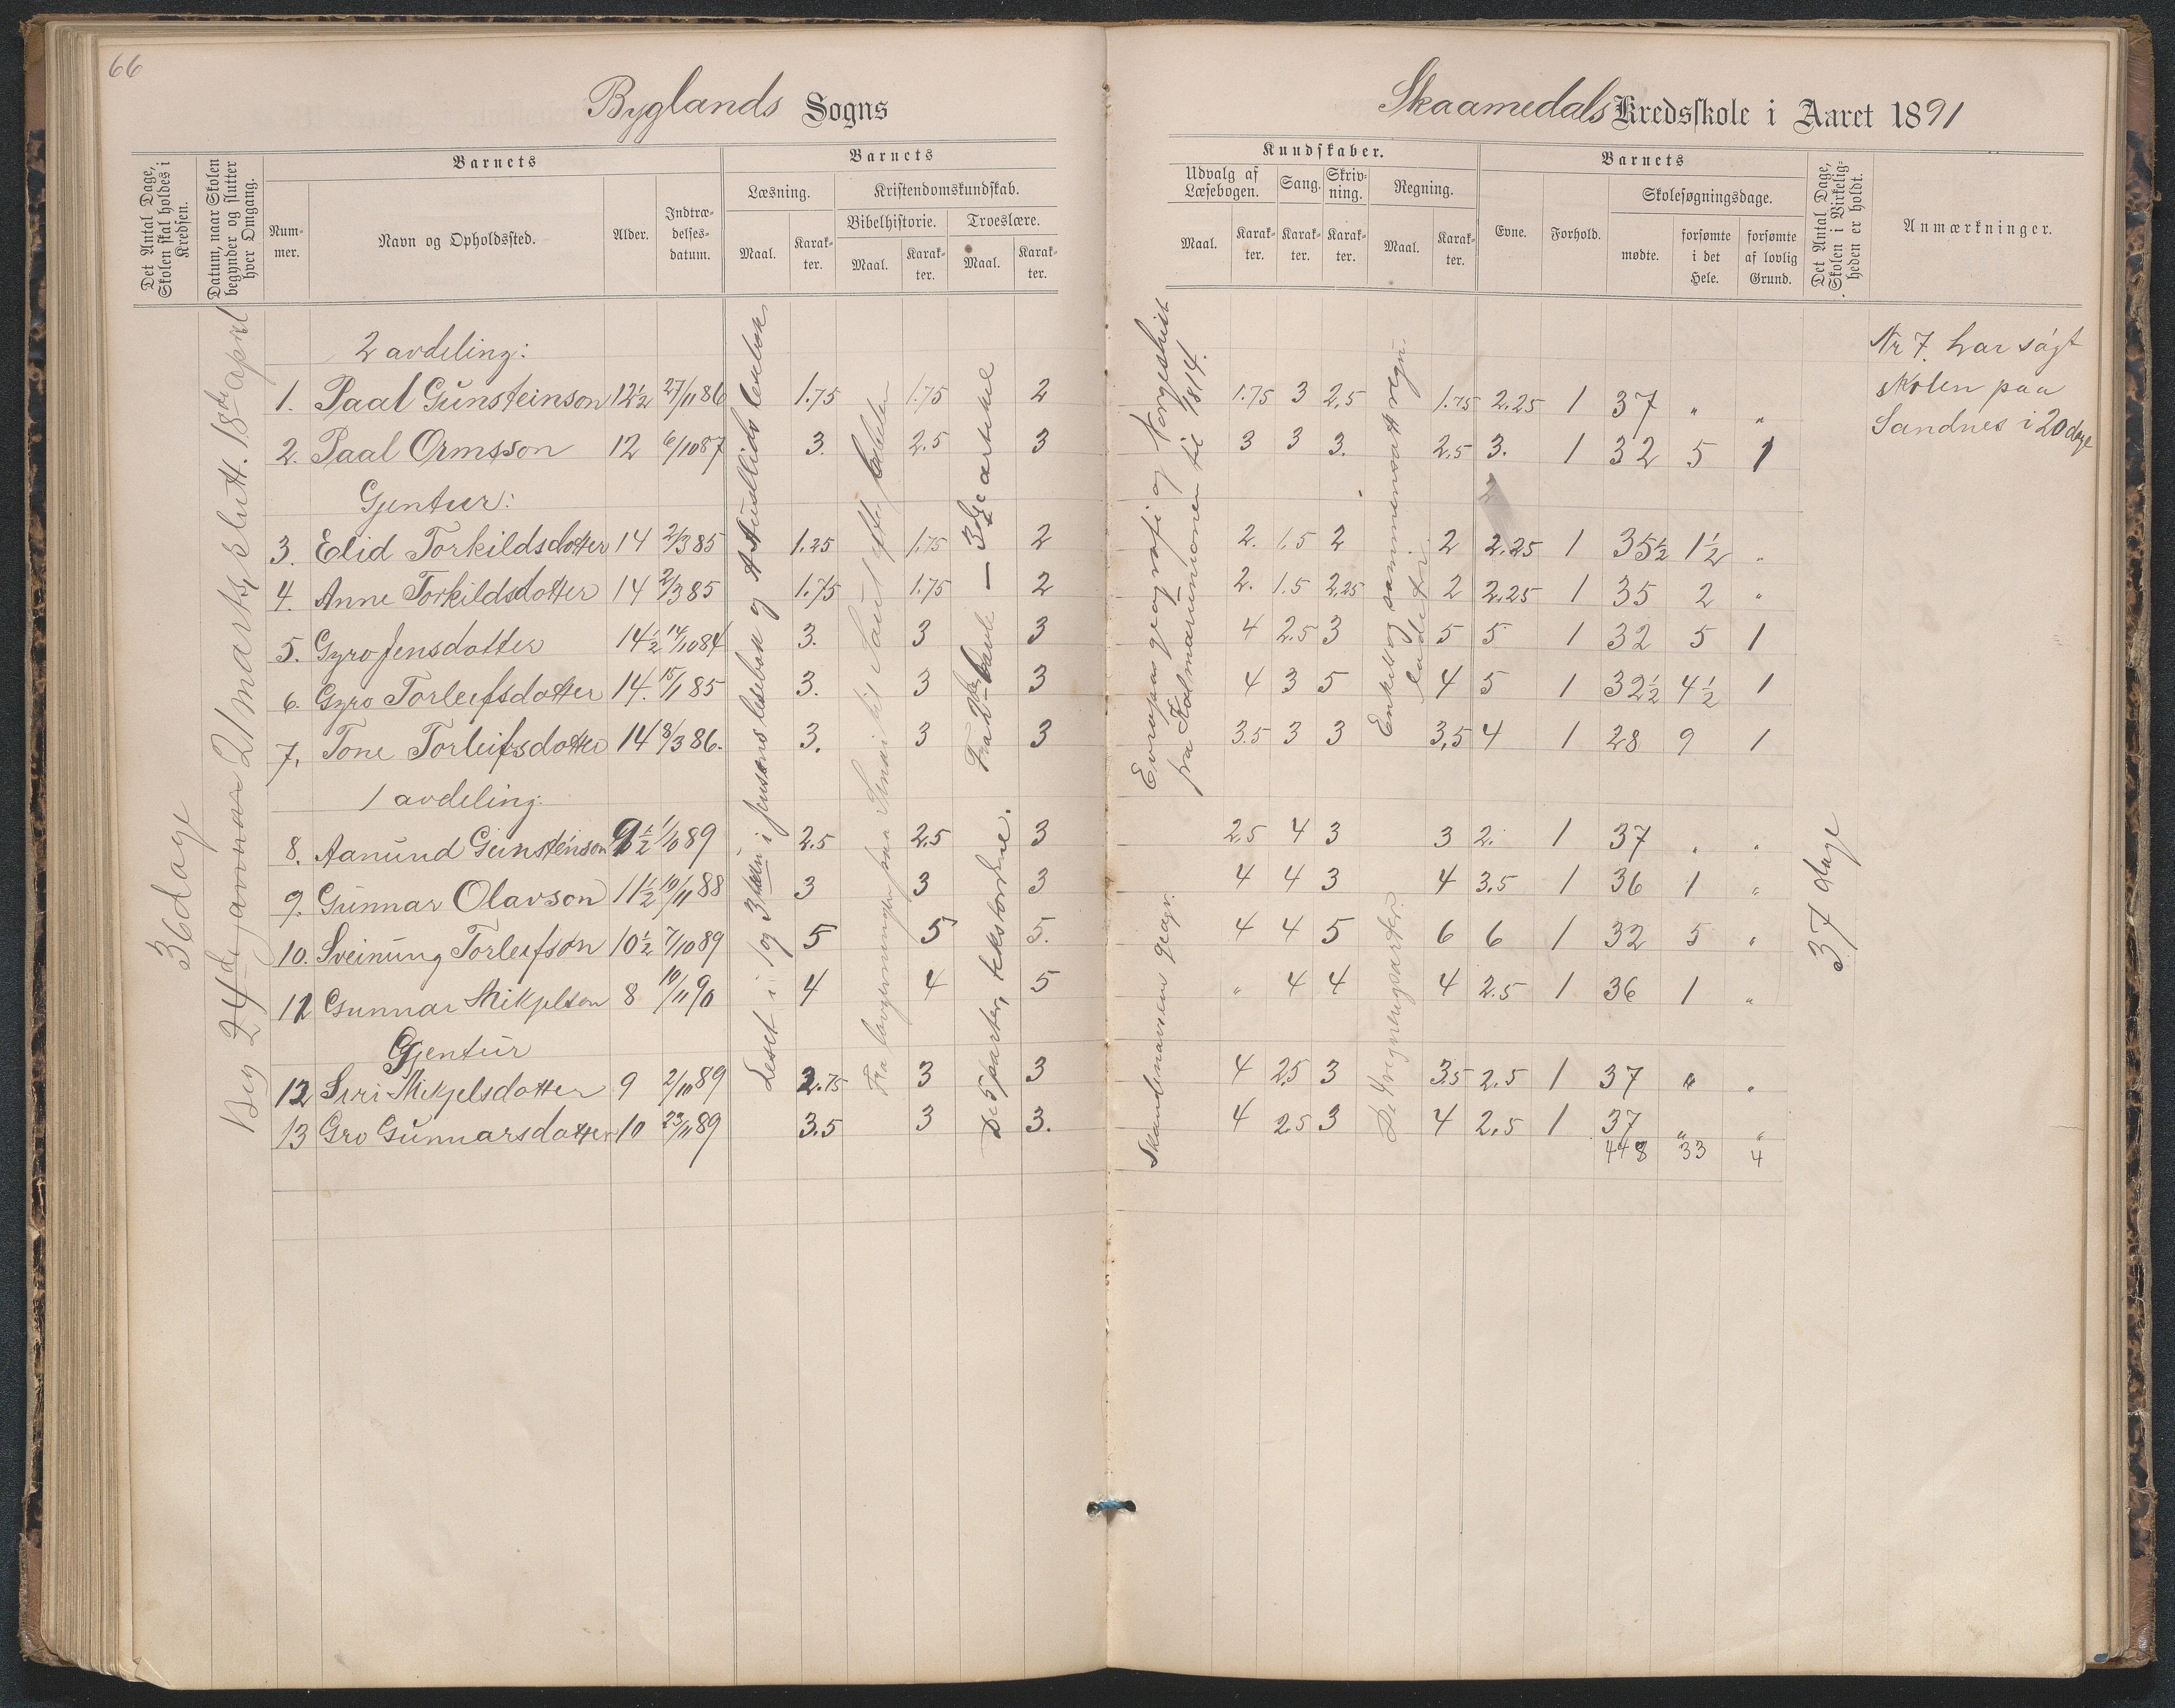 66
Byglands Sogns
Skaamedals Kredsskole i Aaret 1891
Det Antal Dage, Skolen skal holdes i Kredsen.
Datum, naar Skolen begynder og slutter hver Omgang.
Barnets
Num-
mer.
Navn og Opholdssted.
Alder.
Indtræ-
delses-
datum.
Barnets
Læsning.
Maal.
Karak-
ter.
Kristendomskundskab.
Bibelhistorie.
Maal.
Karak-
ter.
Troeslære.
Maal.
Karak-
ter.
Kundskaber.
Udvalg af
Læsebogen.
Maal.
Karak-
ter.
Sang.
Karak-
ter.
Skriv-
ning.
Karak-
ter.
Regning.
Maal.
Karak-
ter.
Barnets
Evne.
Forhold.
Skolesøgningsdage.
mødte.
forsømte
i det
Hele.
forsømte
af lovlig
Grund.
Det Antal Dage, Skolen i Virkelig-
heden er holdt.
Anmærkninger.
36 dage
Beg 24de januar 21 marts, slutt. 18de april
Leset i 1 og 3 i Jensens lesebok og Austlids lesebok
Fra til Saul efter
Fra 2den – 3dje artikel
De 5 parter, tekstordene.
Evropas geografi og Norgeshist
fra Kalmarunionen til 1814.
Skandinaviens geogr.
Enkelt og sammensatt regn.
De 4 regningsarter.
2 avdeling:
1. Paal Gunsteinson 12½ 27/11 86 1.75 1.75 2 1.75 3 2,5 1.75 2.25 1 37 " "
2. Paal Ormsson 12 6/10 87 3. 2.5 3 3 3 3. 2,5 3. 1 32 5 1
Gjentur:
3. Elid Torkildsdotter 14 2/3 85 1.25 1.75 2 2. 1.5 2 2 2.25 1 35½ 1½ "
4. Anne Torkildsdotter 14 2/3 85 1.75 1.75 2 2. 1.5 2,25 2 2,25 1 35 2 "
5. Gyro Jensdotter 14½ 14/10 84 3. 3 3 4 2.5 3 5 5 1 32 5 1
6. Gyro Torleifsdotter 14. 15/1 85 3. 3 3 4 3 5 4 5 1 32½ 4½ 1
7. Tone Torleifsdotter 14 8/3 86. 3. 3 3 3.5 3 3 3,5 4 1 28 9 1
1 avdeling:
8. Aanund Gunsteinson 9½ 1/10 89 2.5 2,5 3 2,5 4 3 3 2. 1 37 " "
9. Gunnar Olavson 11½ 10/11 88 3 3 3 4 4 3 4 3.5 1 36 1 "
10. Sveinung Torleifson 10½ 7/10 89 5 5 5. 4 4 5 6 6 1 32 5 "
11 Gunnar Mikjelson 8 10/11 90 4 4 5 " 4 4 4 2.5 1 36 1 "
Gjentur
12 Siri Mikjelsdotter 9 2/10 89 2.75 3 3 4 2,5 3 3.5 2.5 1 37 " "
13 Gro Gunnarsdotter 10 23/11 89 3.5 3 3. 4 2.5 3 4 2,5 1 37 " "
448 33 4
37 dage
Nr 7. har søgt
skolen paa
Sandnes i 20 dage